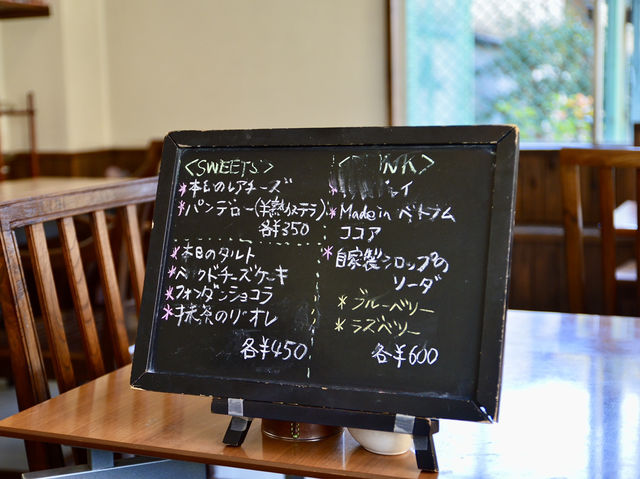 <SWEETS>
*本日のレアチーズ
*パンデロー(半熟カステラ)
各¥350
*本日のタルト
*ベイクドチーズケーキ
*フォンダンショコラ
*抹茶のテリーヌ
各¥450
*Made in ベトナム
ココア
*自家製シロップの
ソーダ
*ブルーベリー
*ラズベリー
各¥600